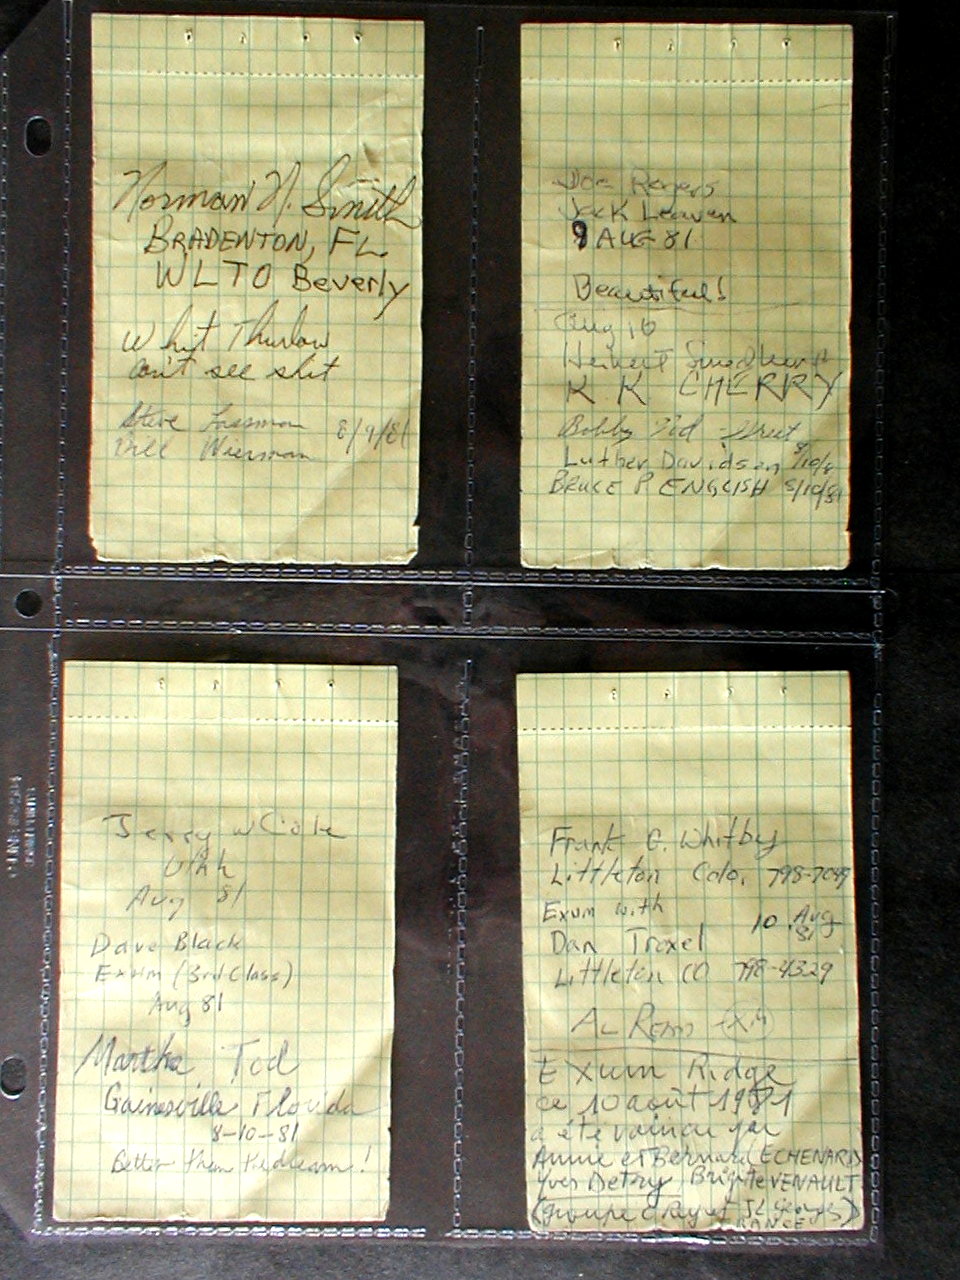 Norman N. Smith
BRADENTON, FL.
WLTO Beverly
Whit Thurlow
can't see shit
Steve 8/9/81
Bill Wierman
Joe Rogers
Jack
9 AUG 81
Beautiful!
Aug 10
Herbert
K K CHERRY
Bobby
Luther Davidson 8/10/81
BRUCE P. ENGLISH 8/10/81
Jerry W Cole
Utah
Aug 81
Dave Black
Exum (3rd Class)
Aug 81
Martha Tod
Gainesville Florida
8-10-81
Better than !
Frank G. Whitby
Littleton Colo. 798-7049
Exum with 10 Aug 81
Dan Troxel
Littleton CO 798-4329
AL
Exum Ridge
ce 10 août 1981
a été vaincu par
Annie et Bernard ECHENARD
Yves Detry Brigitte VENAULT
(groupe St Georges)
FRANCE